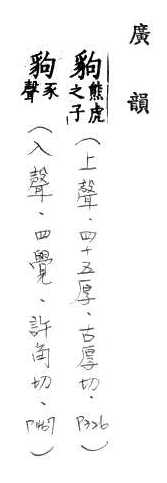 廣韻
豿熊虎之子（上聲．四十五厚．古厚切．P326）
豿豕聲（入聲．四覺．許角切．P467）